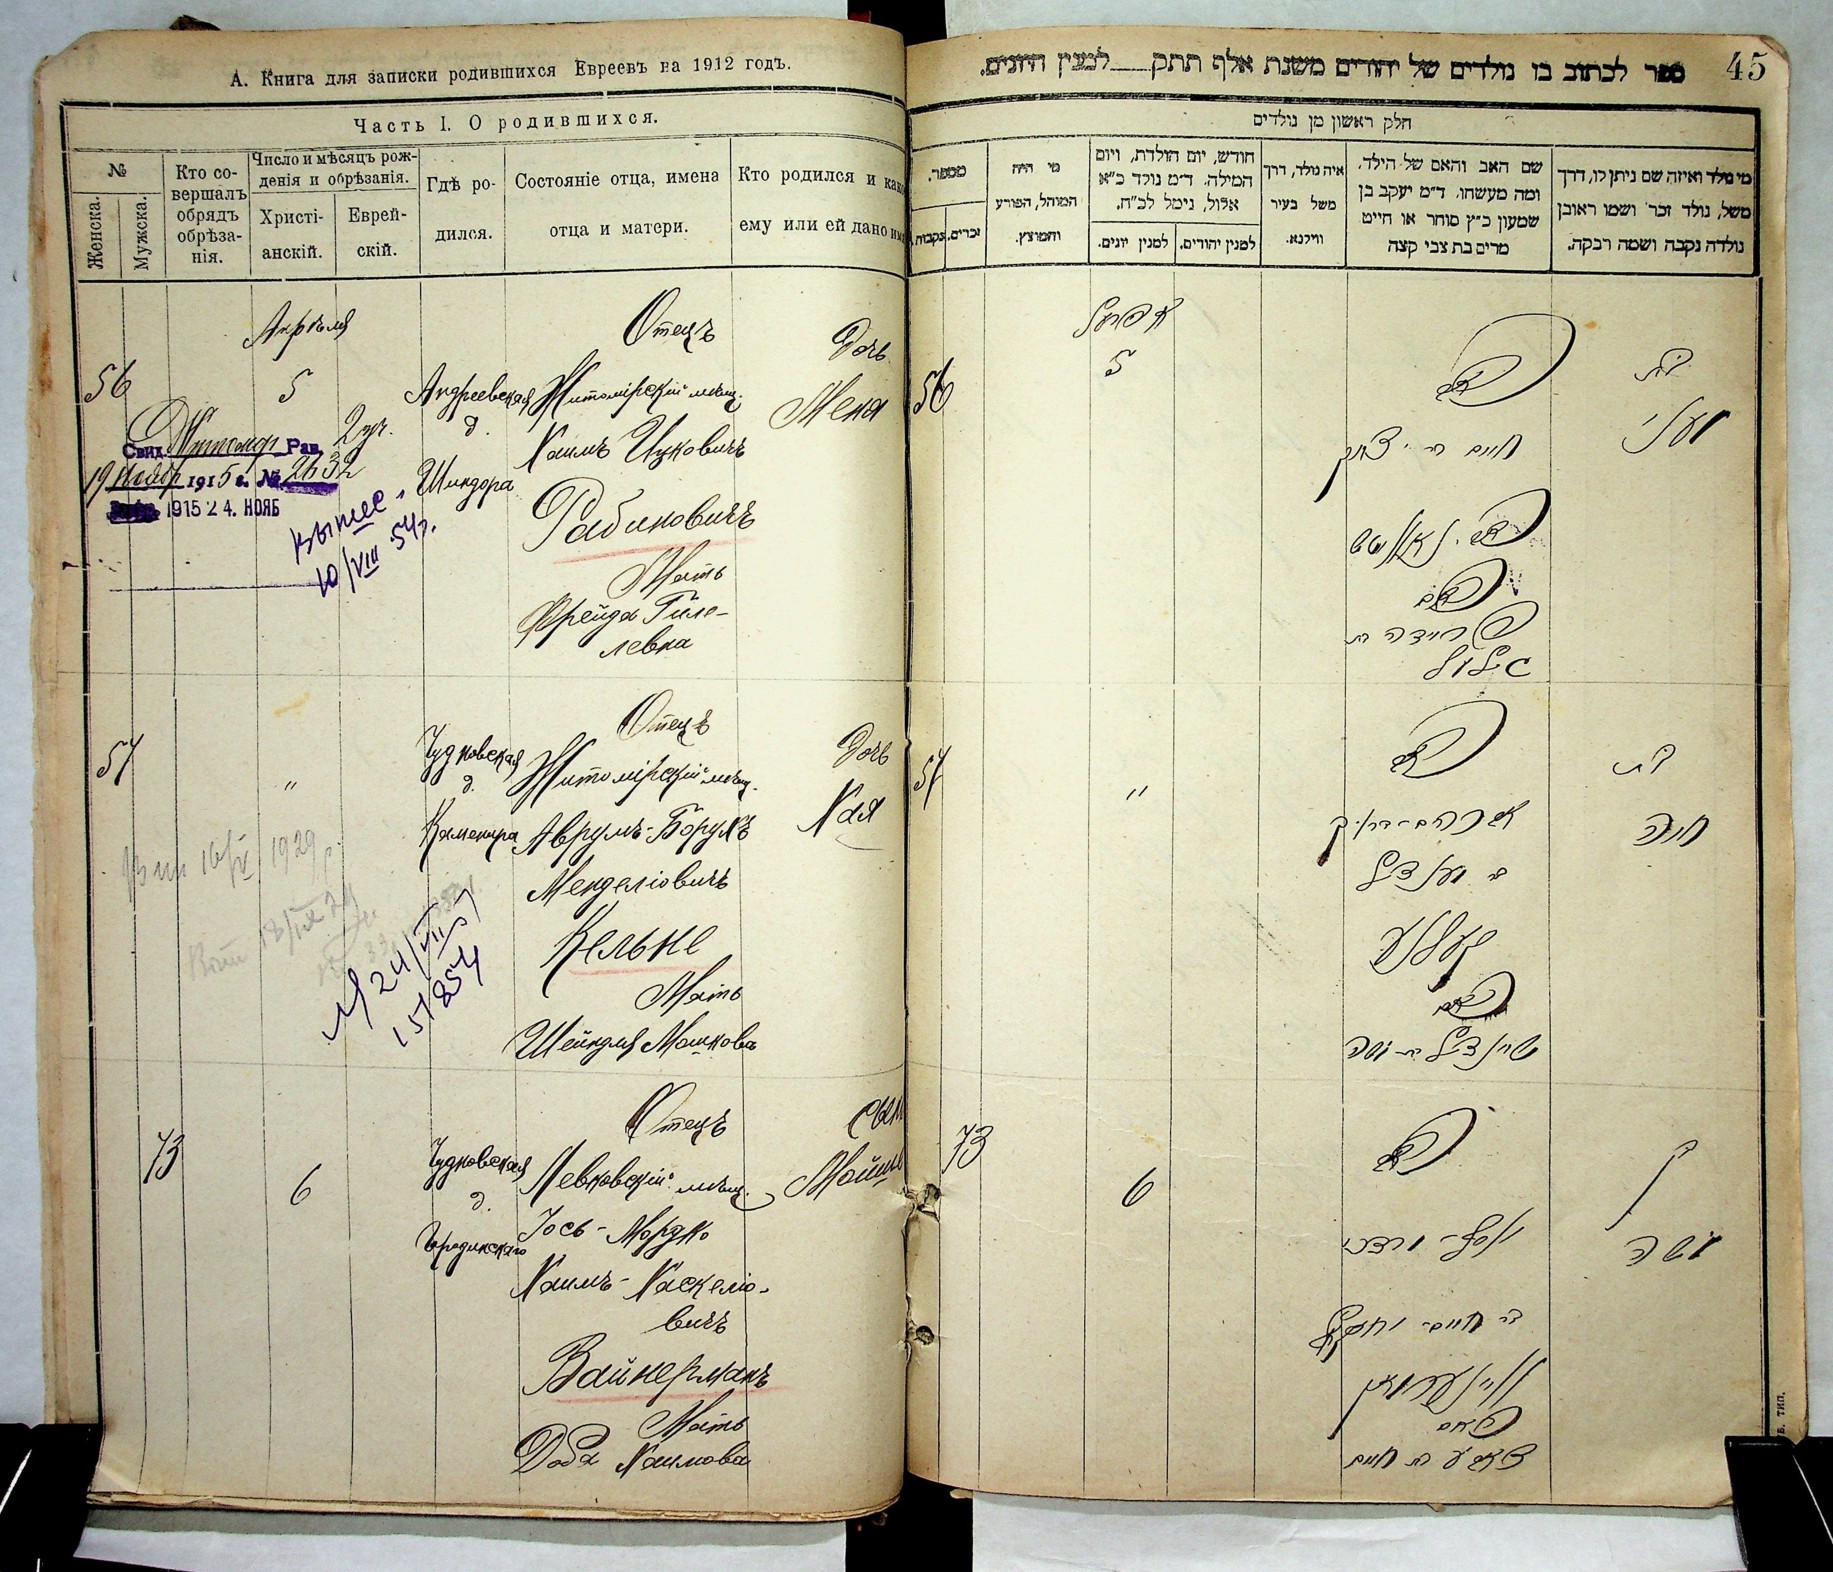 А. Книга для записки родившихся Евреевъ на 1912 годъ.
Часть I. О родившихся.
№
Женска.
Мужска.
Кто со-
вершалъ
обрядъ
обрѣза-
нія.
Число и мѣсяцъ рож-
денія и обрѣзанія.
Христі-
анскій.
Еврей-
скій.
Гдѣ ро-
дился.
Состояніе отца, имена
отца и матери.
Кто родился и како
ему или ей дано им
Апрѣля
56
5
Андреевская
д.
Шиндора
Отецъ
Житомірскій мѣщ.
Хаимъ Ицковичъ
Рабиновичъ
Мать
Фрейда Гиле-
левна
Дочь
Мена
Свид. Житомир Рав.
19 Ноябр 1915 г. № 2632
1915 24. НОЯБ
10/VIII 54г.
57
"
Чудновская
д.
Каменира
Отецъ
Житомірскій мѣщ.
Аврумъ-Борухъ
Менделіовичъ
Кельне
Мать
Шейндля Мошкова
Дочь
Хая
16/IX 1929 г.
18/IX 29
24/VIII 57
73
6
Чудновская
д.
Городинскаго
Отецъ
Левковскій мѣщ.
Іось-Мордко
Хаимъ-Хаскеліо-
вичъ
Вайнерманъ
Мать
Доба Хаимова
сын
Мойше
ספר לכתוב בו נולדים של יהודים משנת אלף תתק___ למנין היונים.
45
חלק ראשון מן נולדים
מי נולד ואיזה שם ניתן לו, דרך
משל, נולד זכר ושמו ראובן
נולדה נקבה ושמה רבקה.
שם האב והאם של הילד,
ומה מעשהו. ד״מ יעקב בן
שמעון כ״ץ סוחר או חייט
מרים בת צבי קצה
איה נולד, דרך
משל בעיר
ווילנא.
חודש, יום הולדת, ויום
המילה. ד״מ נולד כ״א
אלול, נימל לכ״ח.
למנין יהודים.
למנין יונים.
מי היה
המוהל, הפורע
והמוצץ.
מספר.
זכרים.
נקבות.
אפריל
56
5
האב
חיים בר יצחק
ראבינאוויטש
האם
פריידה בת
הילל
בת
מעני
57
"
האב
אברהם-ברוך
בר מענדיל
קעלנע
האם
שיינדיל בת משה
בת
חיה
73
6
האב
יוסף-מרדכי
בר חיים-יחזקאל
וויינערמאן
האם
דאבע בת חיים
בן
משה